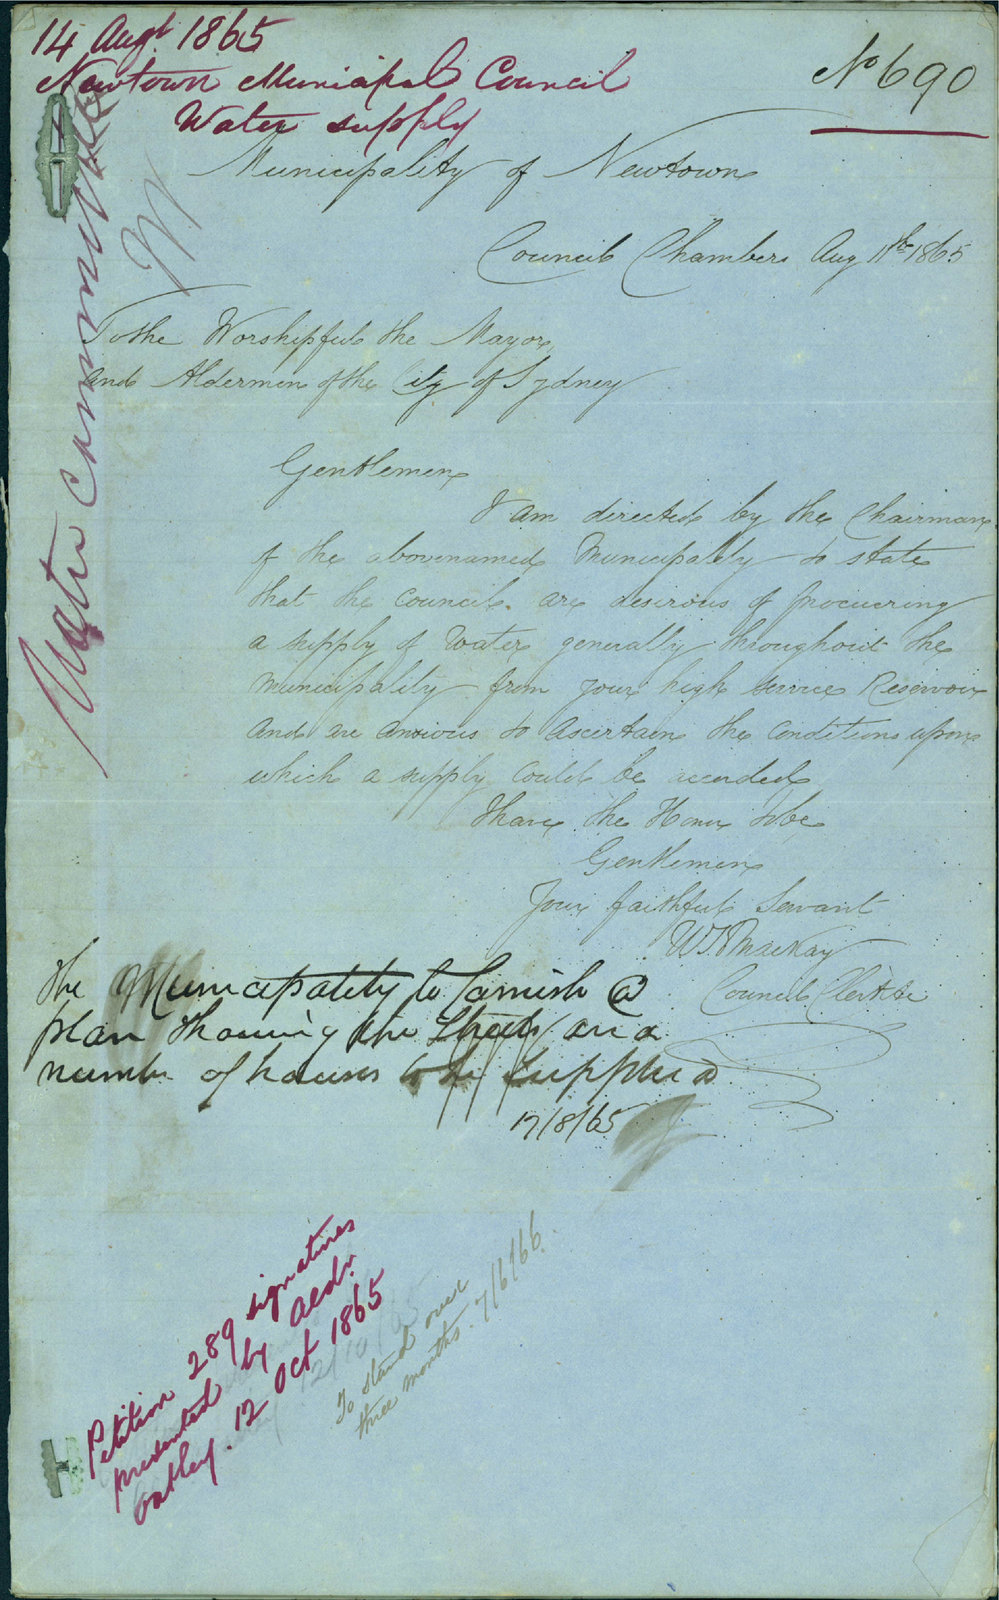 14 Augt 1865
Newtown Municipal Council
Water supply
No 690
Water Committee
Municipality of Newtown
Council Chambers Aug 11th 1865
To the Worshipful the Mayor
and Aldermen of the City of Sydney
Gentlemen
I am directed by the Chairman
of the abovenamed Municipality to state
that the Council are desirous of procuering
a supply of Water generally throughout the
Municipality from your high service Reservoir
and are anxious to ascertain the conditions upon
which a supply could be accorded
I have the Honor to be
Gentlemen
Your faithful Servant
Mackay
Council Clerk
The Municipality to furnish a
plan showing the Streets and
number of houses to be supplied
17/8/65
Petition 289 signatures
presented by Aldr.
Oatley. 12 Oct 1865
12/10/65
To stand over
three months. 7/6/66.